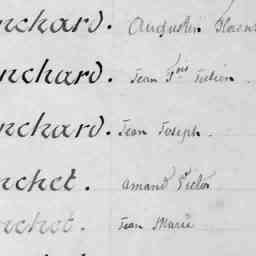 nchard. Augustin
nchard. Jean Fois
nchard. Jean Joseph.
nchet. Amand Victor
nchet. Jean Marie